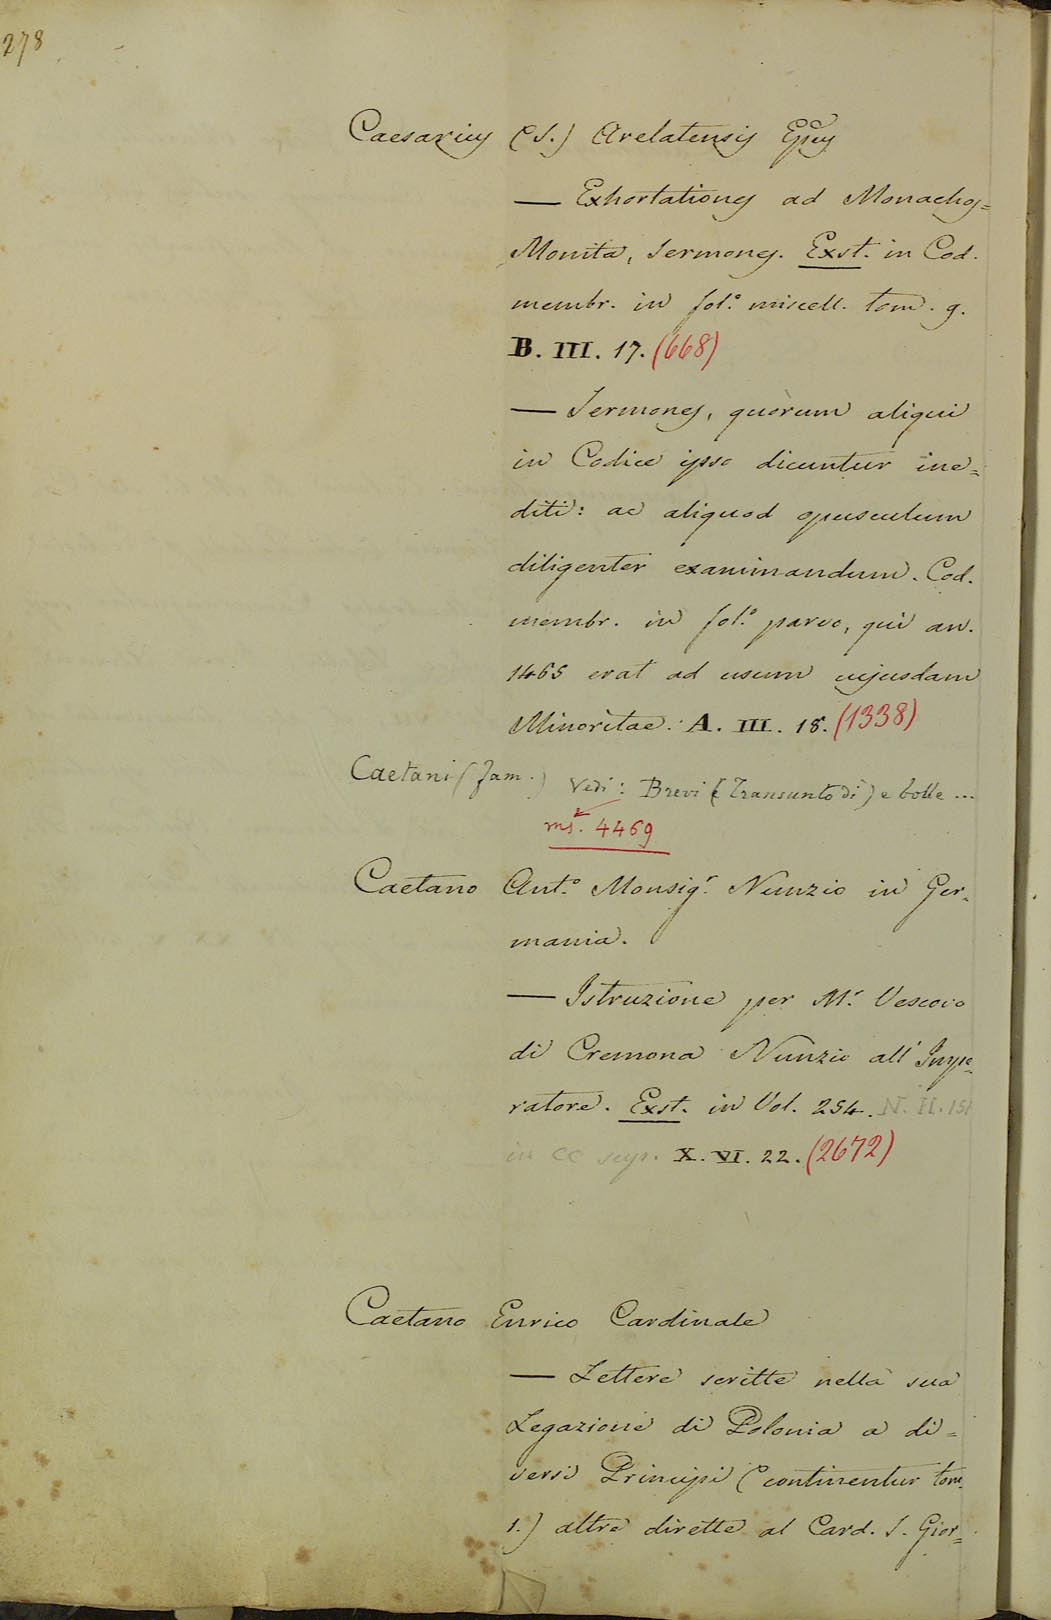 278
Caesarius (S.) Arelatensis Epus
— Exhortationes ad Monachos =
Monita, Sermones. Exst. in Cod.
membr. in fol.° miscell. tom. 9.
B. III. 17. (668)
— Sermones, quorum aliqui
in Codice ipso dicuntur ine=
diti: ac aliquod opusculum
diligenter examinandum. Cod.
membr. in fol.° parvo, qui an.
1465 erat ad usum cujusdam
Minoritae. A. III. 18. (1338)
Caetani (fam.) Vedi: Brevi (Transunto di) e bolle ...
ms. 4469
Caetano Ant.° Monsig.r Nunzio in Ger=
mania.
— Istruzione per M.r Vescovo
di Cremona Nunzio all' Impe=
ratore. Exst. in Vol. 254. N. II. 151
in CC sup. X. VI. 22. (2672)
Caetano Enrico Cardinale
— Lettere scritte nella sua
Legazione di Polonia a di=
versi Principi (continentur tom.
1.) altre dirette al Card. S. Gior=